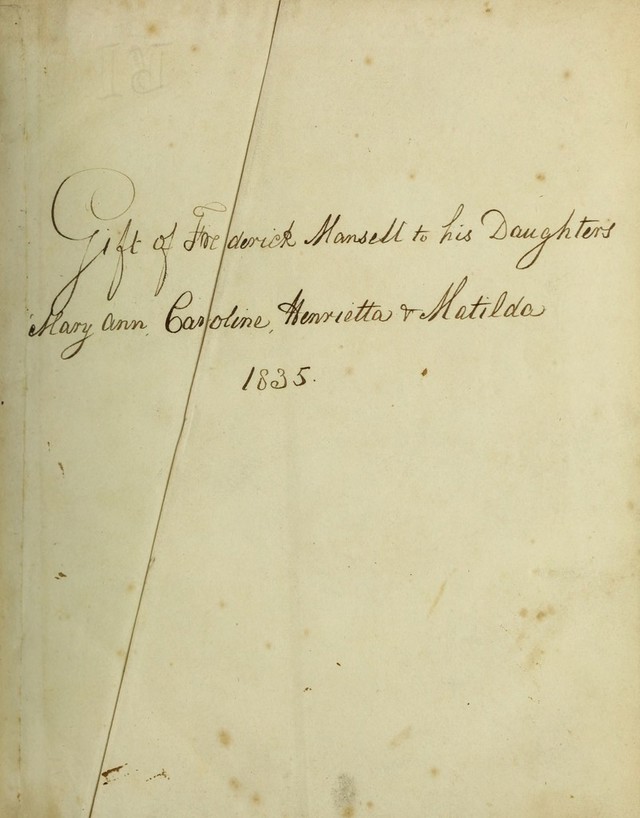 Gift of Frederick Mansell to his Daughters
Mary Ann, Caroline, Henrietta & Matilda
1835.